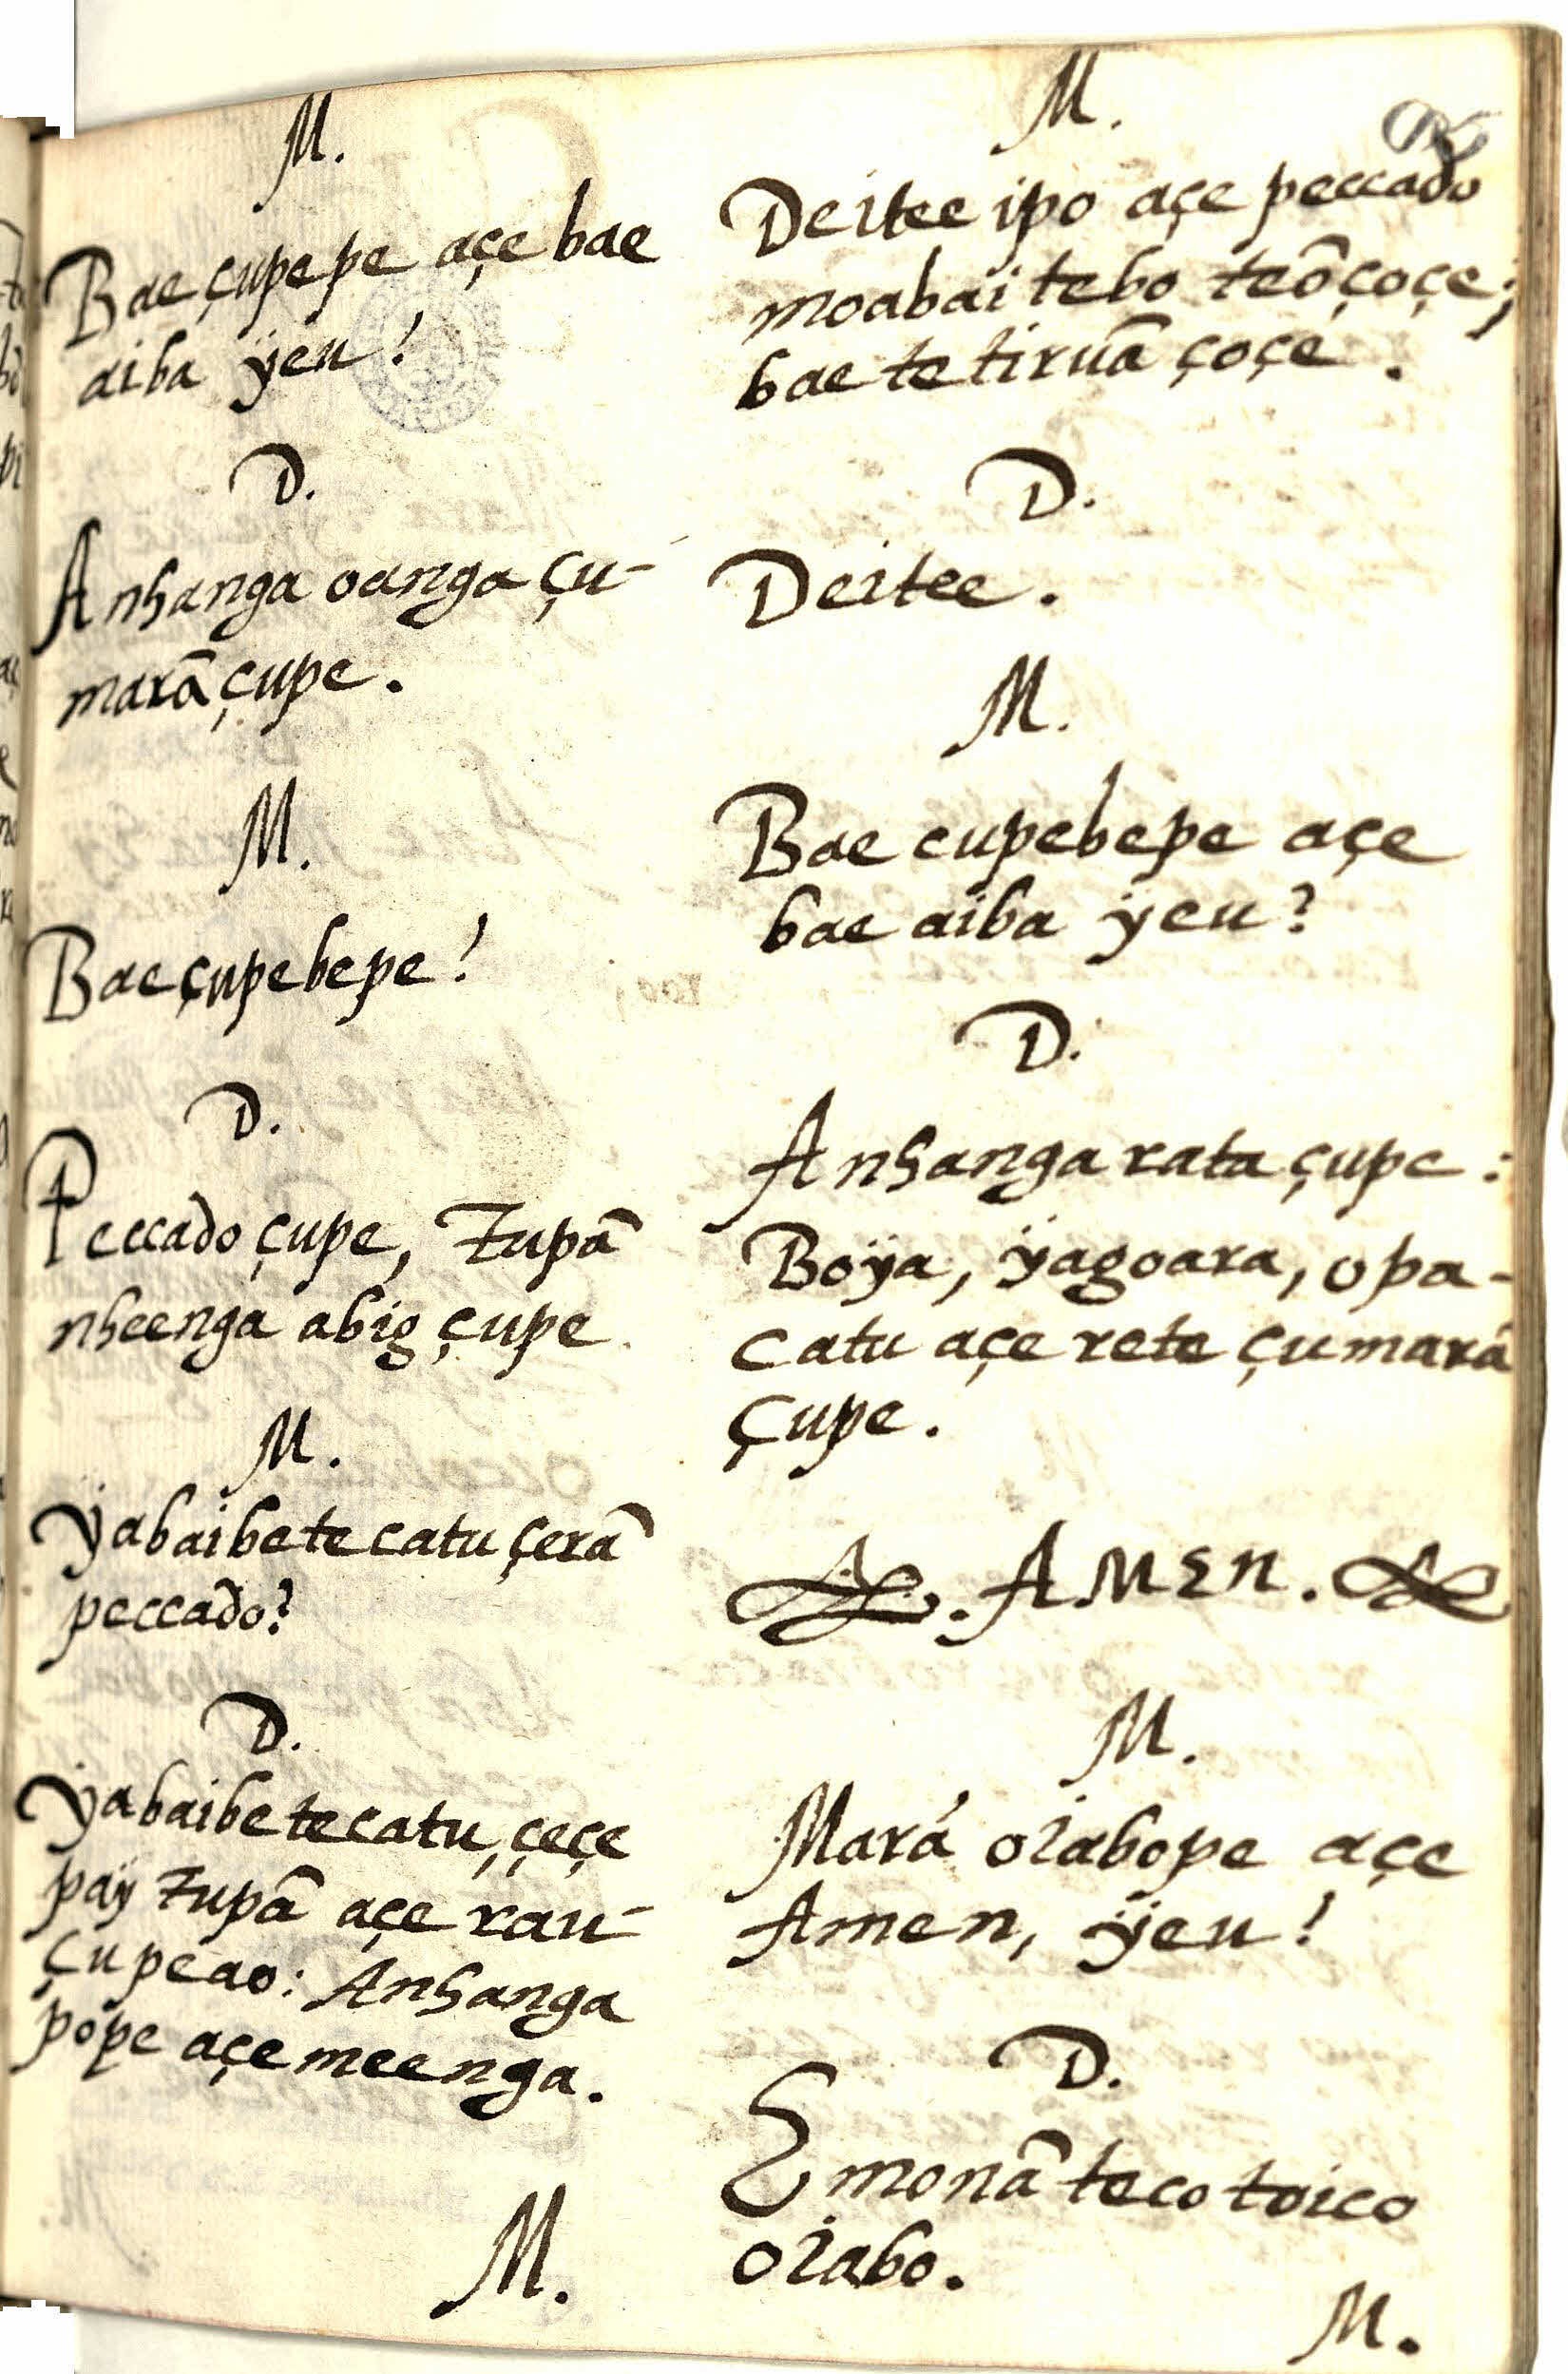 M.
Bae çupepe açe bae
aiba ÿeu?
D.
Anhanga oanga çu-
marã çupe.
M.
Bae çupebepe?
D.
Peccado çupe, Tupã
nheenga abig çupe.
M.
Ÿabaibete catu çerã
peccado?
D.
Ÿabaibete catu, çeçe
paÿ Tupã açe rau-
çupeao: Anhanga
pope açe meenga.
M.
M.
Deitee ipo açe peccado
moabaitebo teõ çoçe;
bae tetiruã çoçé.
D.
Deitee.
M.
Bae cupebepe açe
bae aiba ÿeu?
D.
Anhanga rata çupe:
Boÿa, ÿagoara, opa-
catu açe rete çumarã
çupe.
.AMEN.
M.
Mará oiabope açe
Amen, ÿeu?
D.
Emonã teco toico
oiabo.
M.